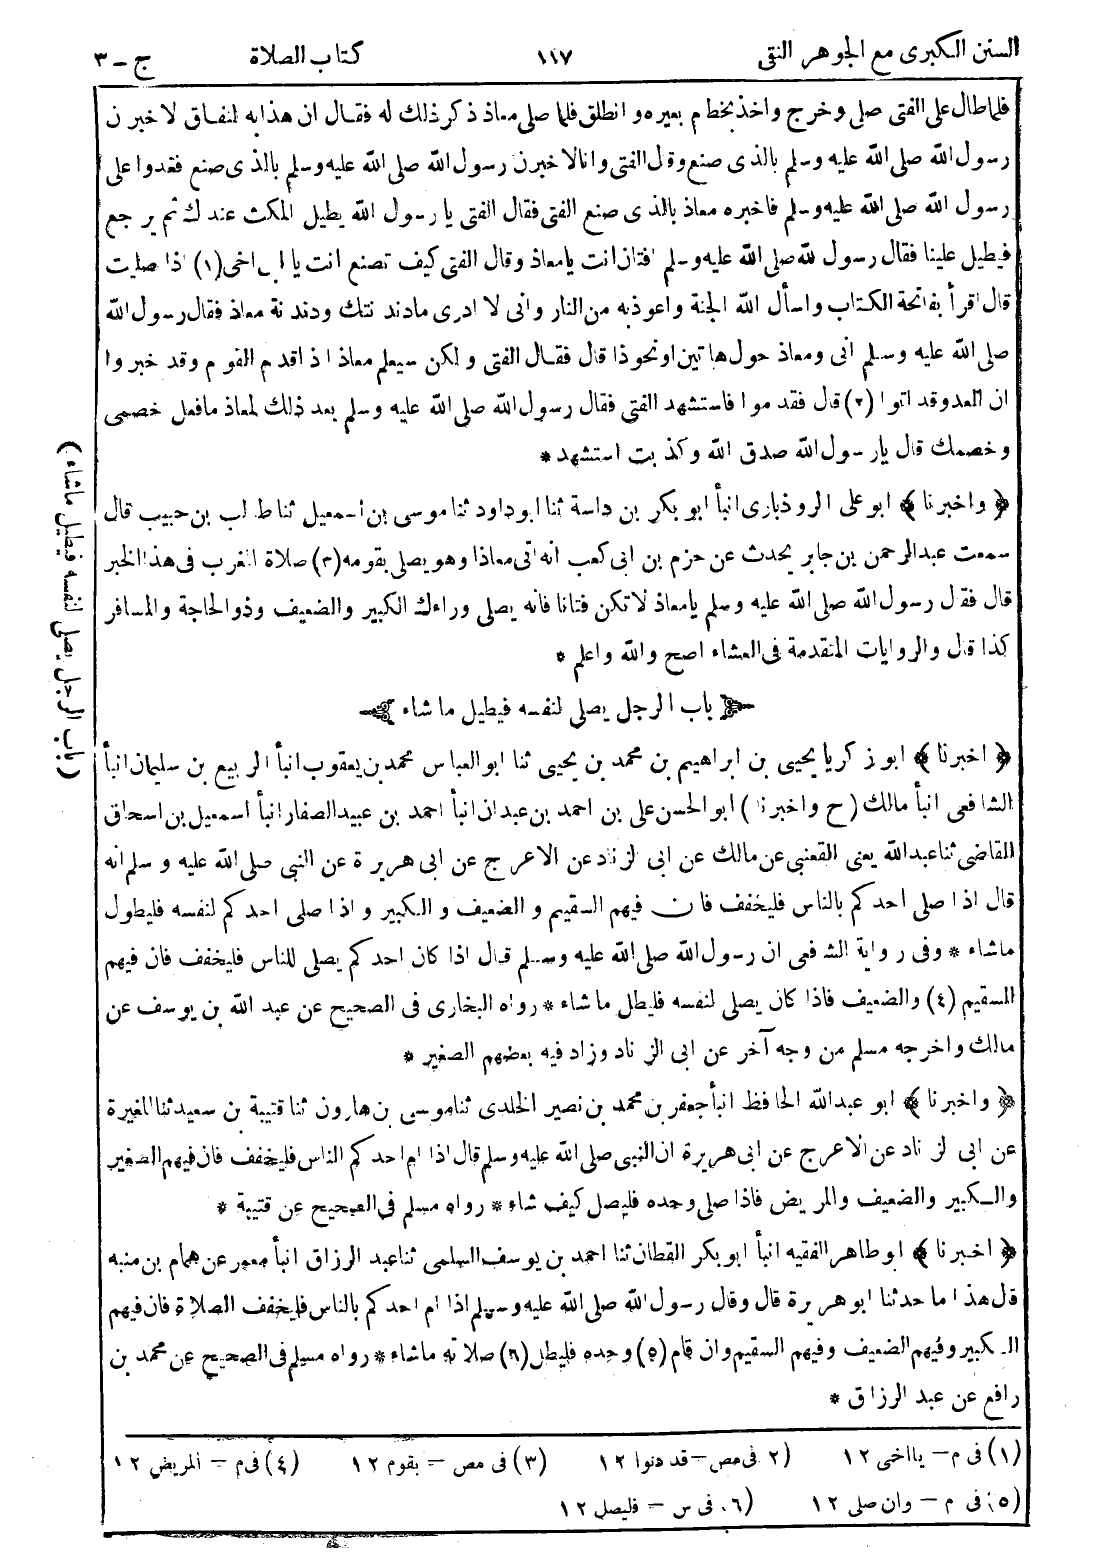 السنن الكبرى مع الجوهر النقى ١١٧ كتاب الصلاة ج - ٣
فلما طال على الفتى صلى وخرج واخذ بخطام بعيره وانطلق فلما صلى معاذ ذكر ذلك له فقال ان هذا به لنفاق لاخبرن
رسول الله صلى الله عليه وسلم بالذى صنع وقال الفتى وانا لاخبرن رسول الله صلى الله عليه وسلم بالذى صنع فغدوا على
رسول الله صلى الله عليه وسلم فاخبره معاذ بالذى صنع الفتى فقال الفتى يا رسول الله يطيل المكث عندك ثم يرجع
فيطيل علينا فقال رسول الله صلى الله عليه وسلم افتان انت يا معاذ وقال الفتى كيف تصنع انت يا ابن اخى (١) اذا صليت
قال اقرأ بفاتحة الكتاب واسأل الله الجنة واعوذ به من النار وانى لا ادرى ما دندنتك ودندنة معاذ فقال رسول الله
صلى الله عليه وسلم انى ومعاذ حول هاتين او نحو ذا قال فقال الفتى ولكن سيعلم معاذ اذا قدم القوم وقد خبروا
ان العدو قد اتوا (٢) قال فقدموا فاستشهد الفتى فقال رسول الله صلى الله عليه وسلم بعد ذلك لمعاذ ما فعل خصمى
وخصمك قال يا رسول الله صدق الله وكذبت استشهد *
﴿ واخبرنا ﴾ ابو على الروذبارى انبأ ابو بكر بن داسة ثنا ابو داود ثنا موسى بن اسمعيل ثنا طالب بن حبيب قال
سمعت عبد الرحمن بن جابر يحدث عن حزم بن ابى كعب انه اتى معاذا وهو يصلى بقومه (٣) صلاة المغرب فى هذا الخبر
قال فقال رسول الله صلى الله عليه وسلم يا معاذ لا تكن فتانا فانه يصلى وراءك الكبير والضعيف وذو الحاجة والمسافر
كذا قال والروايات المتقدمة فى العشاء اصح والله واعلم *
باب الرجل يصلى لنفسه فيطيل ما شاء
﴿ اخبرنا ﴾ ابو زكريا يحيى بن ابراهيم بن محمد بن يحيى ثنا ابو العباس محمد بن يعقوب انبأ الربيع بن سليمان انبأ
الشافعى انبأ مالك (ح واخبرنا) ابو الحسن على بن احمد بن عبدان انبأ احمد بن عبيد الصفار انبأ اسمعيل بن اسحاق
القاضى ثنا عبد الله يعنى القعنبى عن مالك عن ابى الزناد عن الاعرج عن ابى هريرة عن النبى صلى الله عليه وسلم انه
قال اذا صلى احدكم بالناس فليخفف فان فيهم السقيم والضعيف والكبير واذا صلى احدكم لنفسه فليطول
ما شاء * وفى رواية الشافعى ان رسول الله صلى الله عليه وسلم قال اذا كان احدكم يصلى للناس فليخفف فان فيهم
السقيم (٤) والضعيف فاذا كان يصلى لنفسه فليطل ما شاء * رواه البخارى فى الصحيح عن عبد الله بن يوسف عن
مالك واخرجه مسلم من وجه آخر عن ابى الزناد وزاد فيه بعضهم الصغير *
﴿ واخبرنا ﴾ ابو عبد الله الحافظ انبأ جعفر بن محمد بن نصير الخلدى ثنا موسى بن هارون ثنا قتيبة بن سعيد ثنا المغيرة
عن ابى الزناد عن الاعرج عن ابى هريرة ان النبى صلى الله عليه وسلم قال اذا ام احدكم الناس فليخفف فان فيهم الصغير
والكبير والضعيف والمريض فاذا صلى وحده فليصل كيف شاء * رواه مسلم فى الصحيح عن قتيبة *
﴿ اخبرنا ﴾ ابو طاهر الفقيه انبأ ابو بكر القطان ثنا احمد بن يوسف السلمى ثنا عبد الرزاق انبأ معمر عن همام بن منبه
قال هذا ما حدثنا ابو هريرة قال وقال رسول الله صلى الله عليه وسلم اذا ام احدكم بالناس فليخفف الصلاة فان فيهم
الكبير وفيهم الضعيف وفيهم السقيم وان قام (٥) وحده فليطل (٦) صلاته ما شاء * رواه مسلم فى الصحيح عن محمد بن
رافع عن عبد الرزاق *
(١) فى م - يا اخى ١٢ (٢. فى مص - قد دنوا ١٢ (٣) فى مص - بقوم ١٢ (٤) فى م - المريض ١٢
(٥) فى م - وان صلى ١٢ (٦. فى س - فليصل ١٢
(باب الرجل يصلى لنفسه فيطيل ما شاء)